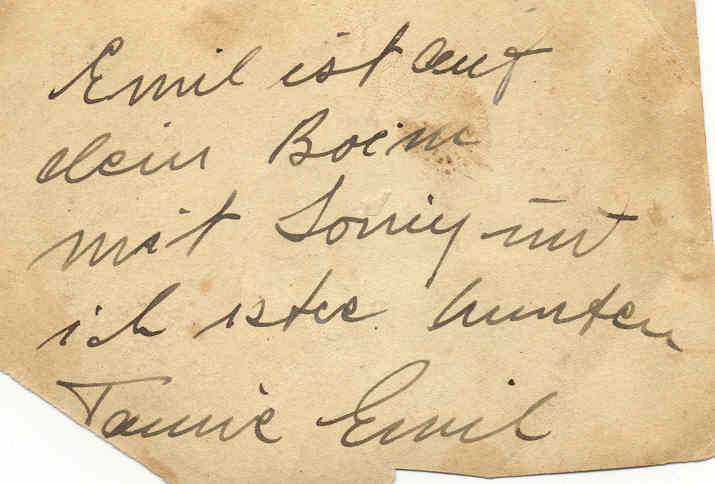 Emil ist auf
dein Boeim
mit Sonnÿ unt
ich istee hunten
Tannie Emil